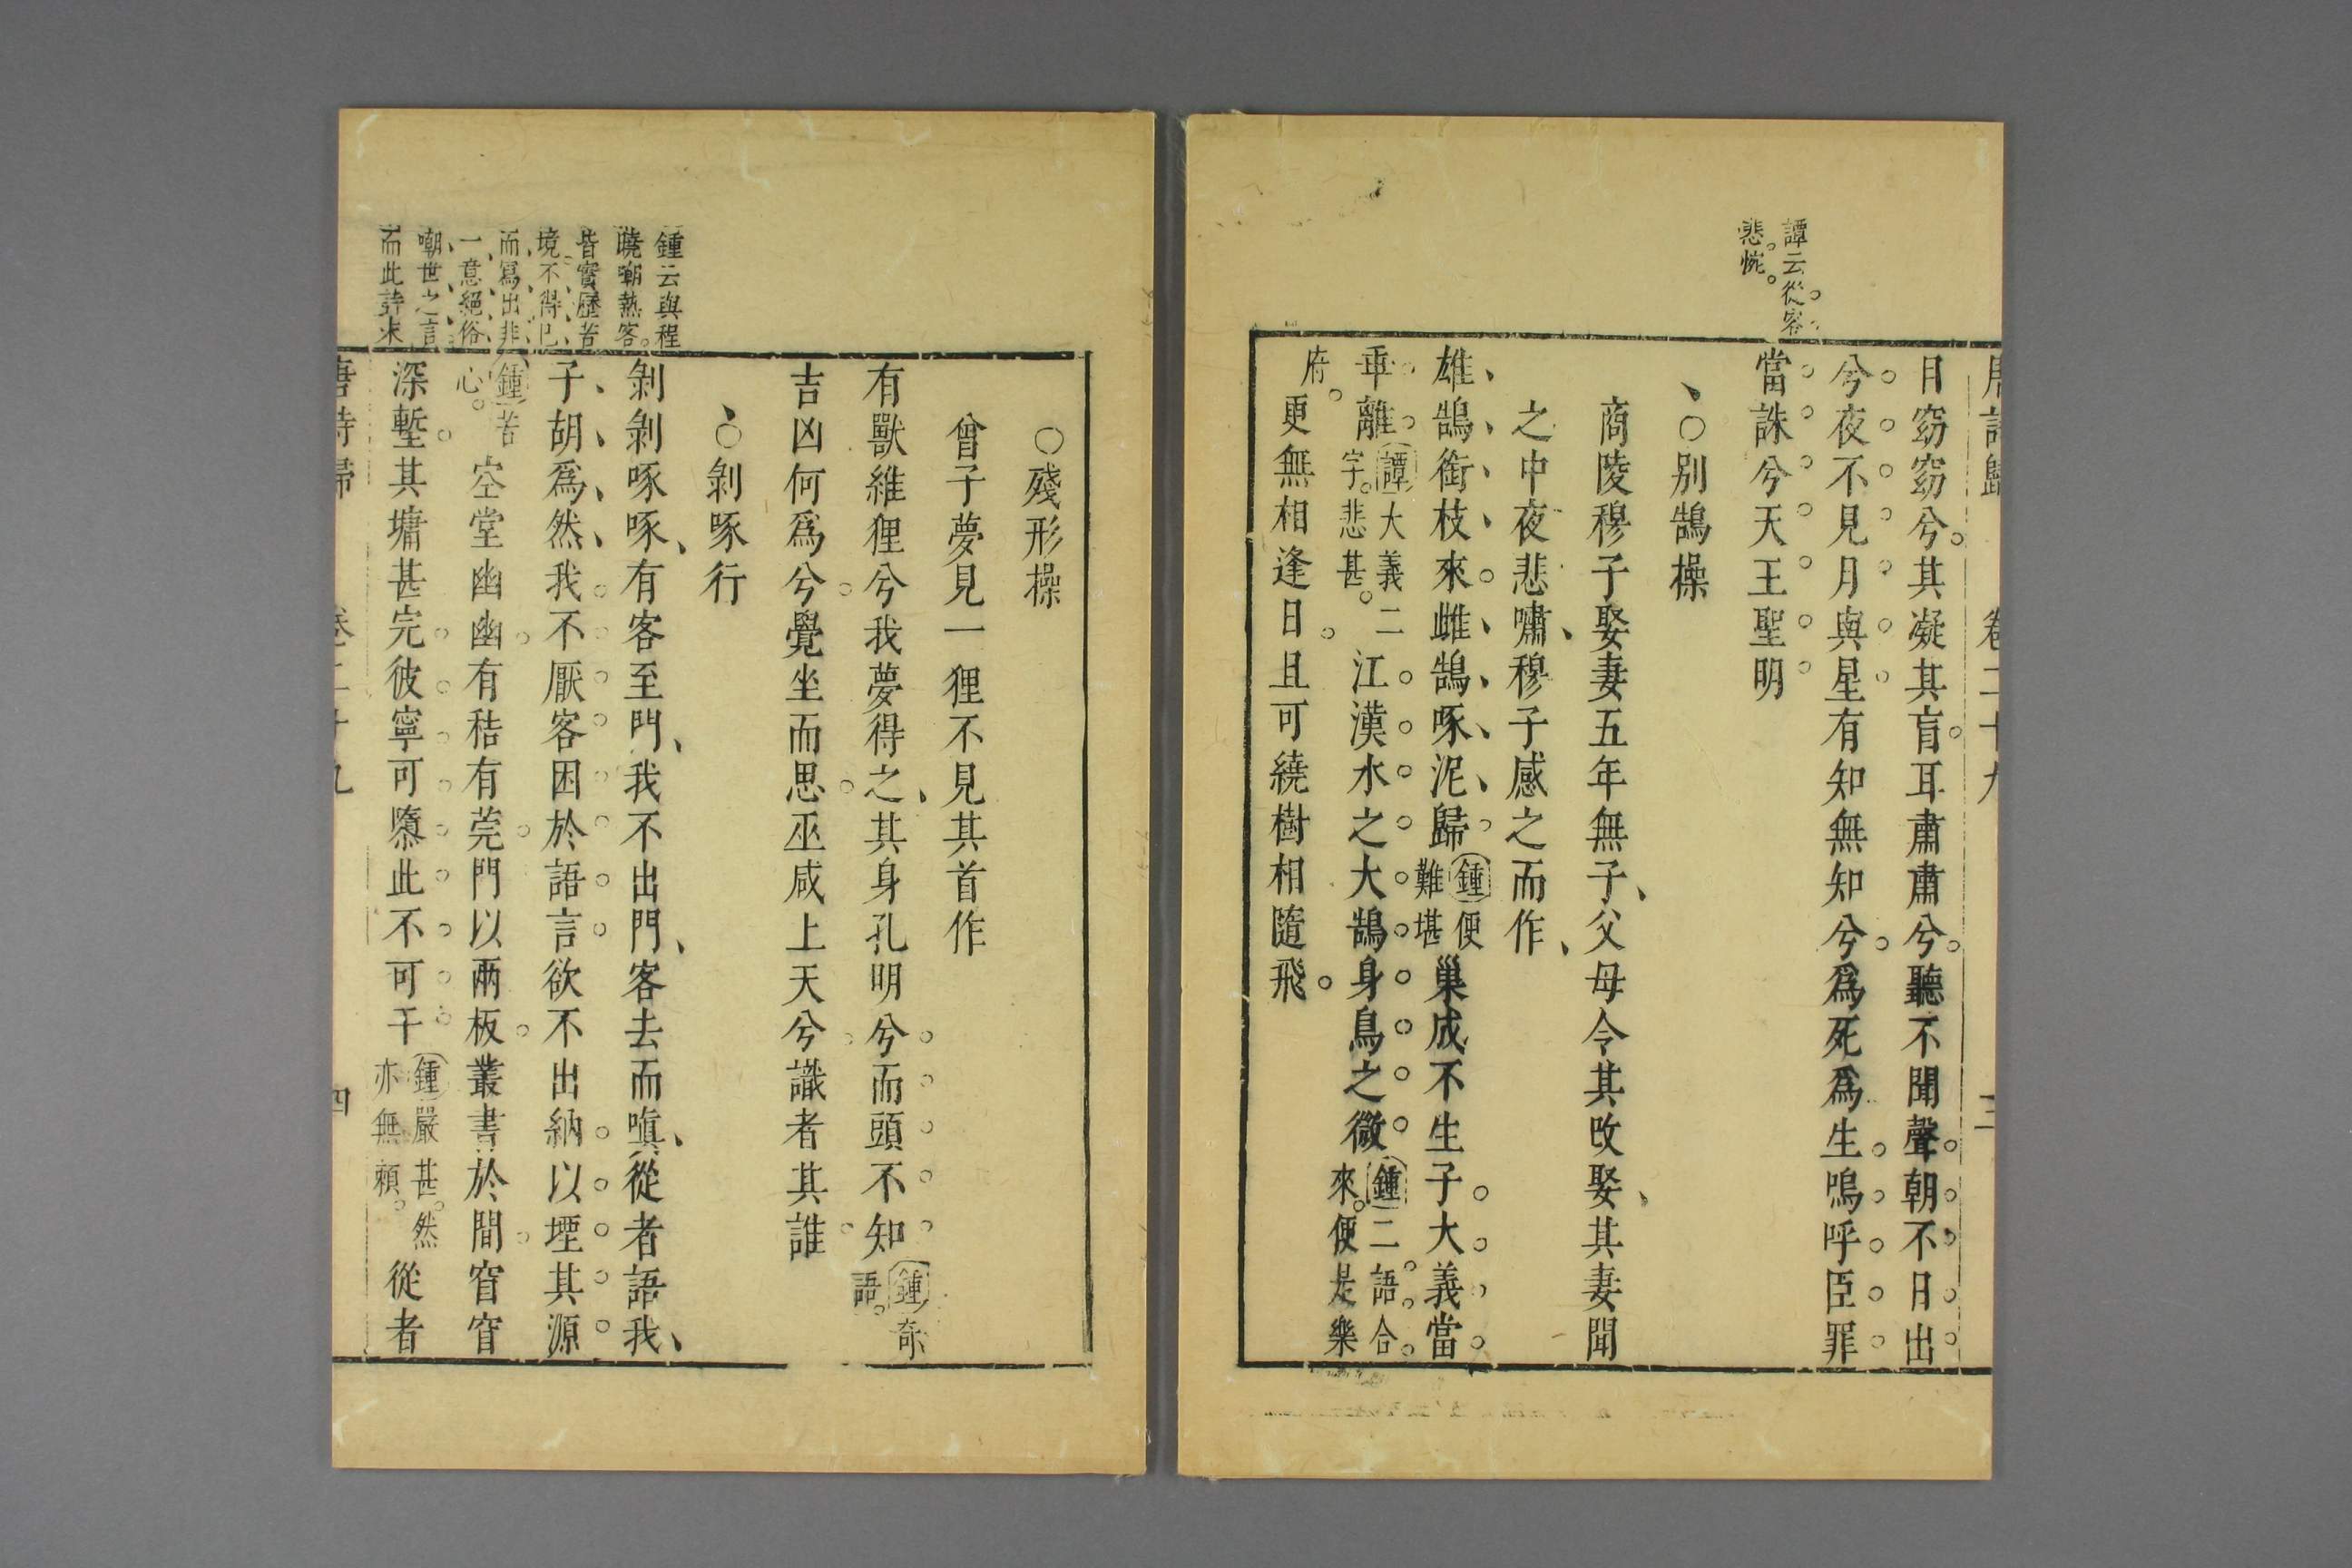 唐詩歸 卷二十九 三
譚云從容
悲惋。
目窈窈兮。其凝其盲。耳肅肅兮。聽不聞聲。朝不日出
兮夜不見月與星有知無知兮爲死爲生嗚呼臣罪
當誅兮天王聖明
○别鵠操
商陵穆子娶妻五年無子、父母令其改娶、其妻聞
之中夜悲嘯、穆子感之而作、
雄鵠銜枝來。雌鵠啄泥歸鍾便難堪巢成不生子。大義當
乖離。譚大義二字。悲甚。江漢水之大鵠身鳥之微鍾二語合來。便是樂
府。更無相逢日。且可繞樹相隨飛。
○殘形操
曾子夢見一狸不見其首作
有獸維狸兮我夢得之、其身孔明兮而頭不知鍾奇語。
吉凶何爲兮。覺坐而思。巫咸上天兮識者其誰
○剝啄行
鍾云與程
曉嘲熱客。
皆實歷苦
境。不得已
而寫出非
一意絕俗
嘲世之言
而此詩末
剝剝啄啄、有客至門、我不出門、客去而嗔、從者語我、
子胡爲然、我不厭客困於語言欲不出納以堙其源
鍾苦心。空堂幽幽。有秸有莞。門以兩板。叢書於間。窅窅
深塹。其墉甚完。彼寧可隳此不可干鍾嚴甚。然亦無賴。從者
唐詩歸 卷二十九 四